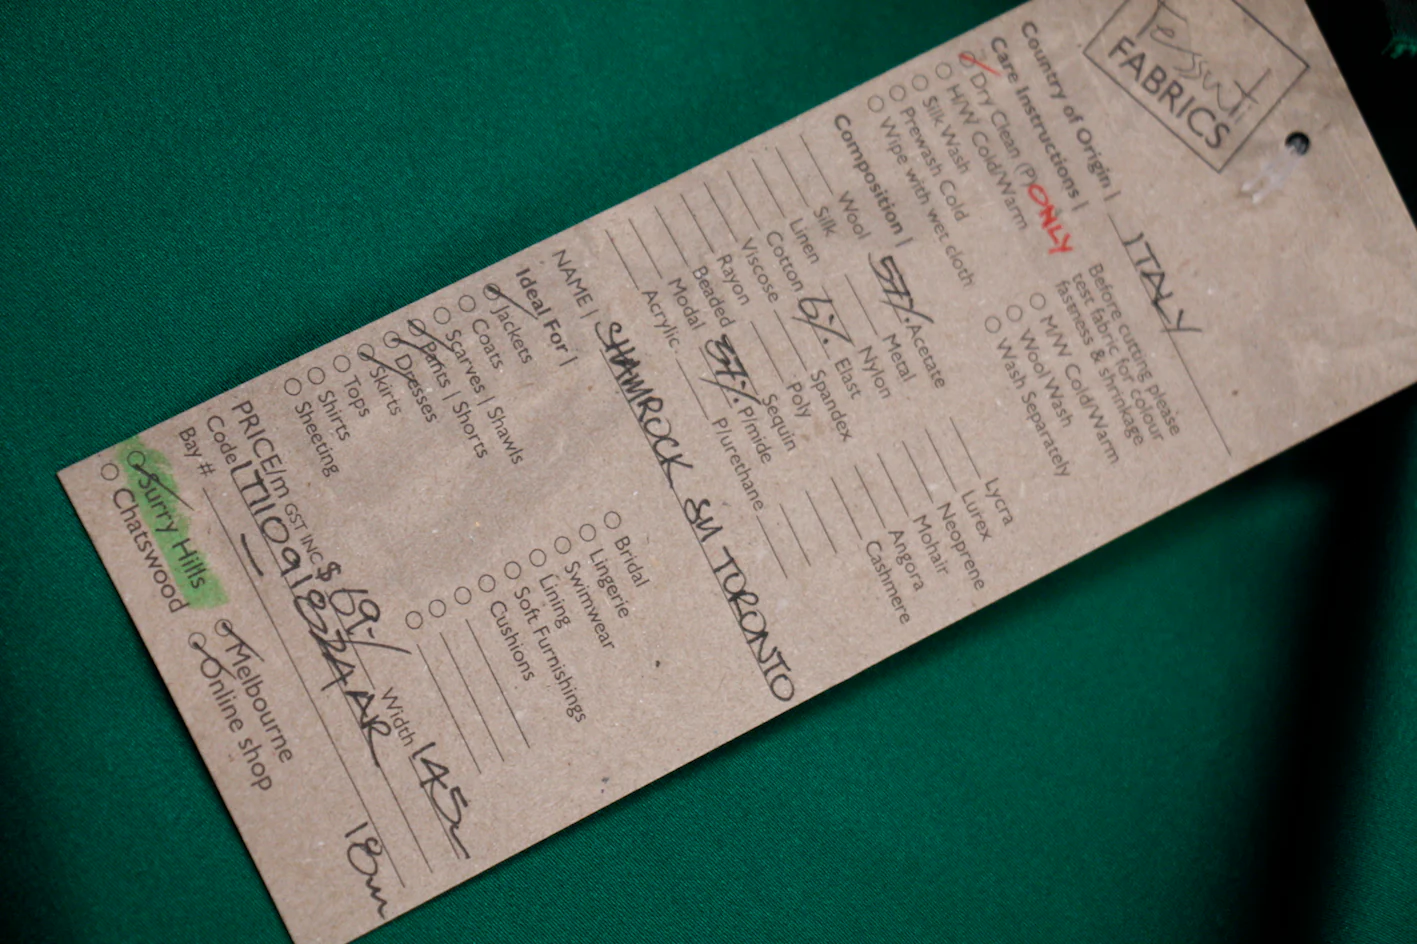 Tessuti
FABRICS
Country of Origin | ITALY
Care Instructions |
Dry Clean (P) ONLY
H/W Cold/Warm
Silk Wash
Prewash Cold
Wipe with wet cloth
Before cutting please
test fabric for colour
fastness & shrinkage
M/W Cold/Warm
Wool Wash
Wash Separately
Composition |
Wool 57% Acetate Lycra
Silk Metal Lurex
Linen Nylon Neoprene
Cotton 6% Elast Mohair
Viscose Spandex Angora
Rayon Poly Cashmere
Beaded Sequin
Modal 37% P/mide
Acrylic P/urethane
NAME | SHAMROCK SM TORONTO
Ideal For |
Jackets Bridal
Coats Lingerie
Scarves | Shawls Swimwear
Pants | Shorts Lining
Dresses Soft Furnishings
Skirts Cushions
Tops
Shirts
Sheeting
PRICE/m GST INC $ 69.- Width 145
Code
Bay # — 18m
Surry Hills Melbourne
Chatswood Online shop